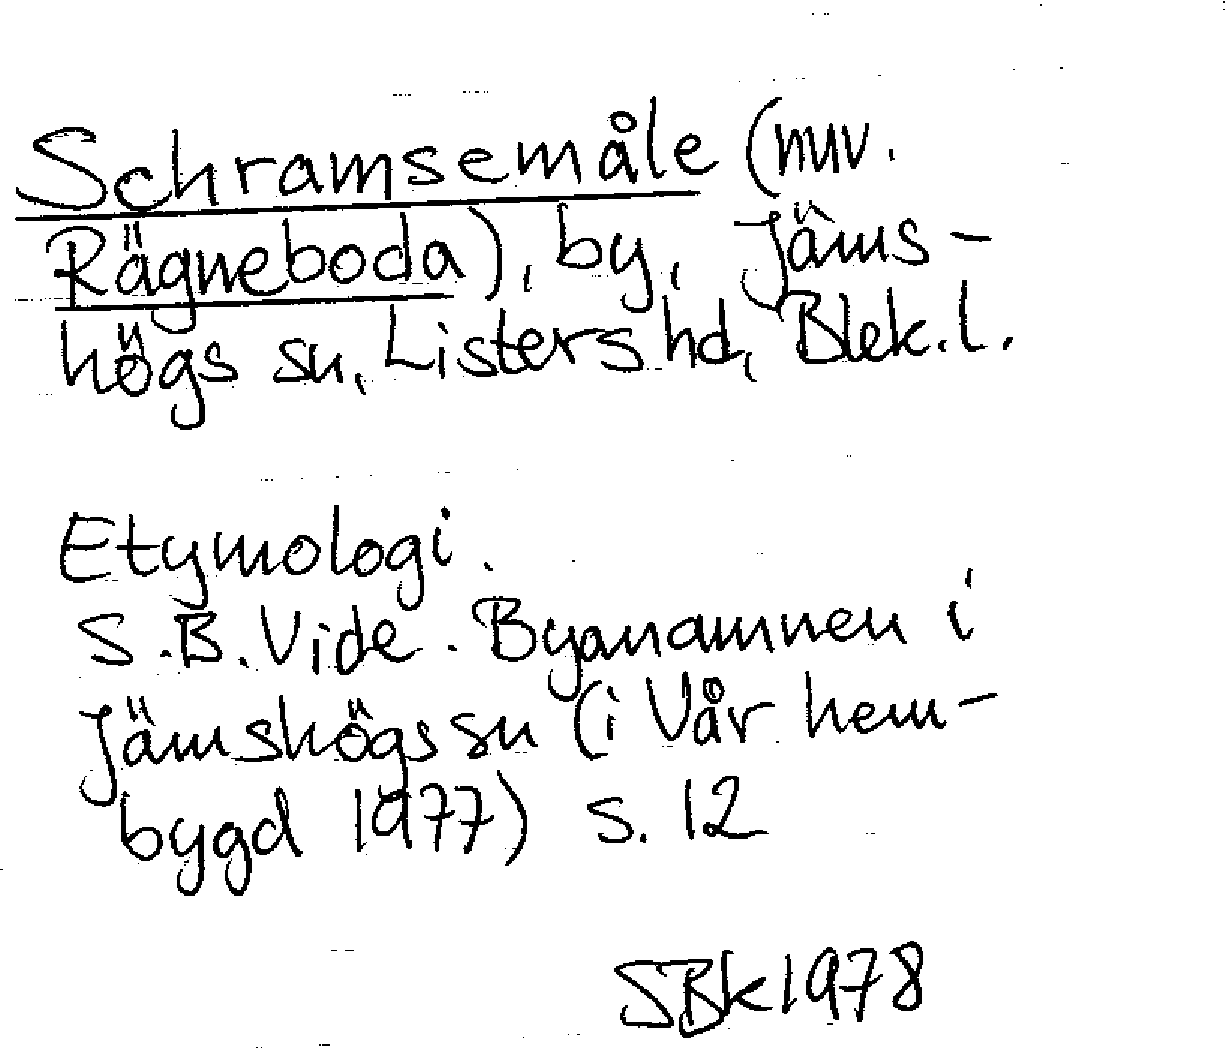 Schramsemåle (nuv.
Rägneboda), by, Jäms-
högs sn, Listers hd, Blek. l.
Etymologi.
S.B. Vide. Bynamnen i
Jämshögs sn (i Vår hem-
bygd 1977) s. 12
SBk 1978